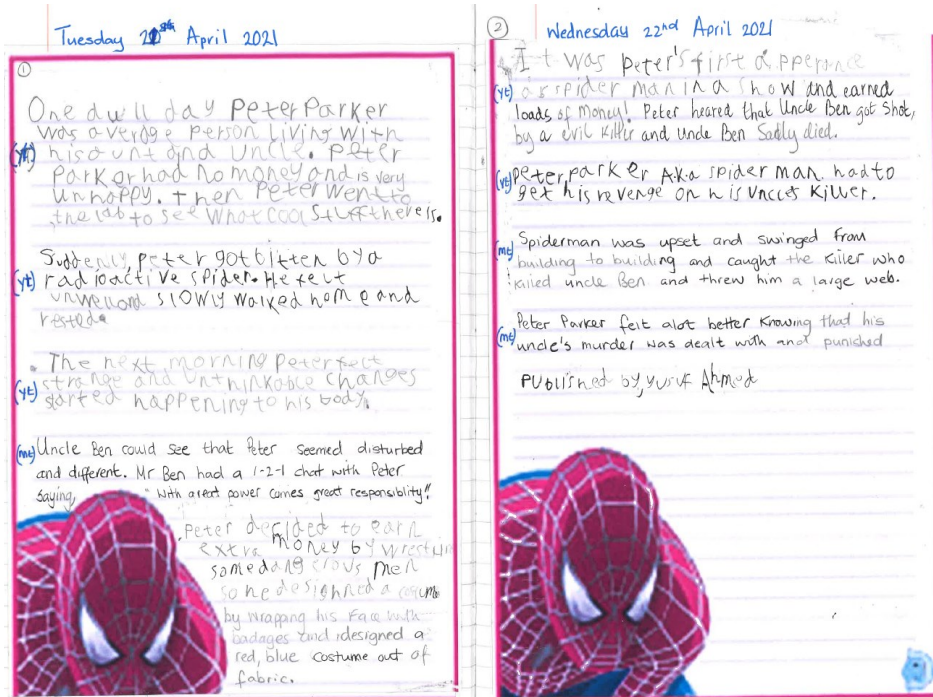 Tuesday 2 April 2021
1
One dwll day Peter Parker
was average person living with
(yt) his aunt and uncle. Peter
Parker had no money and is very
unhappy. Then Peter went to
the lab to see what cool stuff there is.
Suddenly, peter got bitten by a
(yt) radioactive spider. He felt
unwell and slowly walked home and
rested.
The next morning Peter felt
(yt) strange and unthinkable changes
started happening to his body.
(mt) Uncle Ben could see that Peter seemed disturbed
and different. Mr Ben had a 1-2-1 chat with Peter
saying, "With great power comes great responsiblity!"
Peter decided to earn
extra money by wrestling
some dangerous men
so he designned a costume
by wrapping his face with
badages and designed a
red, blue costume out of
fabric.
2
Wednesday 22nd April 2021
It was Peter's first apperance
(yt) as spider man in a show and earned
loads of money! Peter heared that Uncle Ben got shot,
by a evil killer and Uncle Ben Sadly died.
(yt) peter parker A.k.a spider man had to
get his revenge on his uncles killer.
(mt) Spiderman was upset and swinged from
building to building and caught the killer who
killed uncle Ben and threw him a large web.
Peter Parker felt alot better knowing that his
(mt) uncle's murder was dealt with and punished
published by, yusuf Ahmed